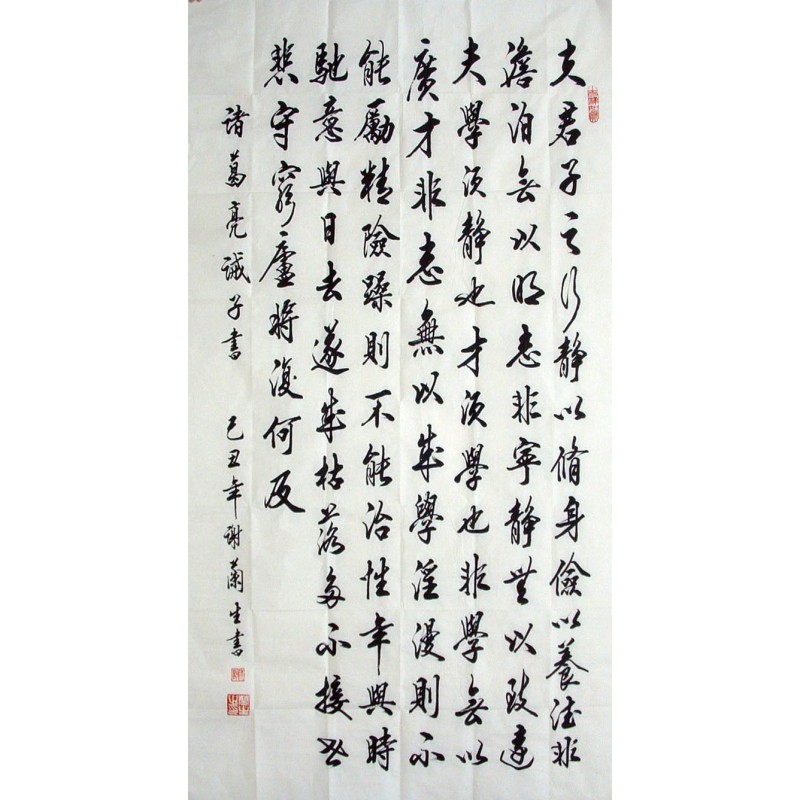 夫君子之行靜以脩身儉以養德非
澹泊無以明志非寧靜無以致遠
夫學須靜也才須學也非學無以
廣才非志無以成學淫漫則不
能勵精險躁則不能治性年與時
馳意與日去遂成枯落多不接世
悲守窮廬將復何及
諸葛亮誡子書 己丑年謝蘭生書